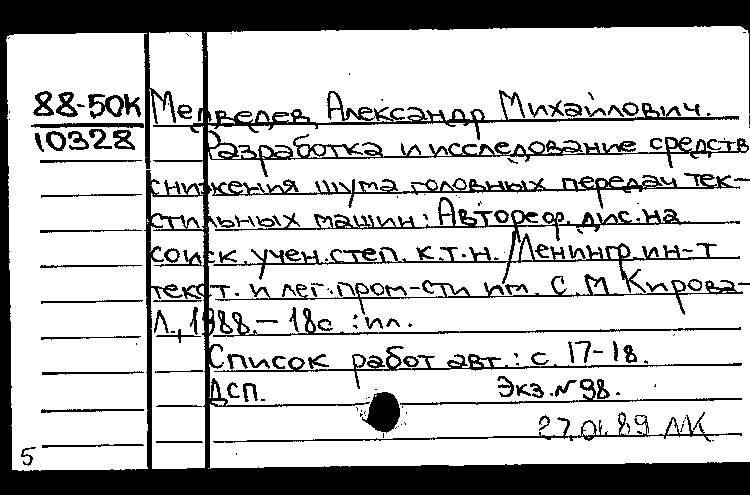 88-50К Медведев, Александр Михайлович.
10328 Разработка и исследование средств
снижения шума головных передач тек-
стильных машин: Автореф. дис. на
соиск. учен. степ. к.т.н. /Ленингр. ин-т
текст. и лег. пром-сти им. С.М. Кирова-
Л., 1988.– 18с :ил.
Список работ авт.: с. 17-18.
ДСП. Экз.№98.
27.01.89 ЛК
5